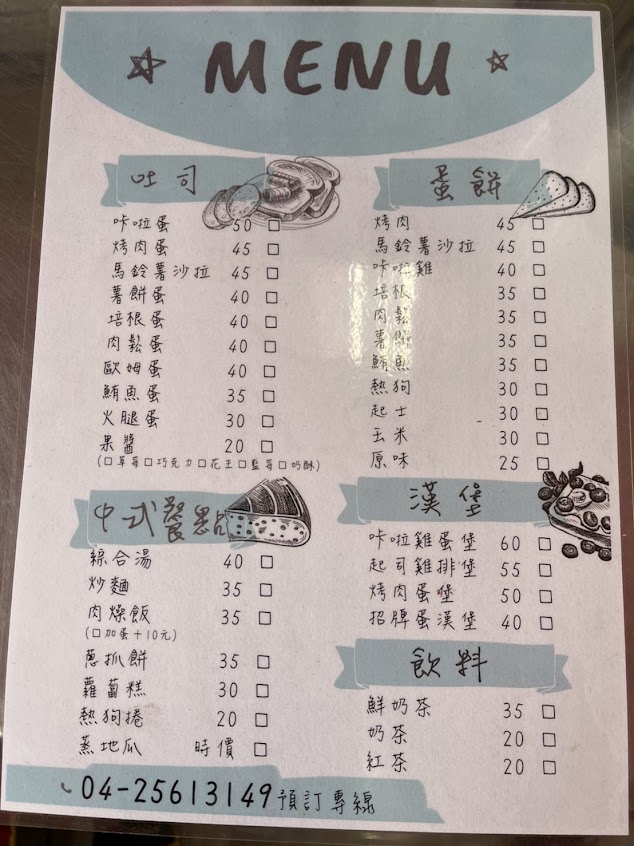 MENU
吐司
咔啦蛋 50 □
烤肉蛋 45 □
馬鈴薯沙拉 45 □
薯餅蛋 40 □
培根蛋 40 □
肉鬆蛋 40 □
歐姆蛋 40 □
鮪魚蛋 35 □
火腿蛋 30 □
果醬 20 □
(□草莓□巧克力□花生□藍莓□奶酥)
中式餐點
綜合湯 40 □
炒麵 35 □
肉燥飯 35 □
(□加蛋+10元)
蔥抓餅 35 □
蘿蔔糕 30 □
熱狗捲 20 □
蒸地瓜 時價 □
蛋餅
烤肉 45 □
馬鈴薯沙拉 45 □
咔啦雞 40 □
培根 35 □
肉鬆 35 □
薯餅 35 □
鮪魚 35 □
熱狗 30 □
起士 30 □
玉米 30 □
原味 25 □
漢堡
咔啦雞蛋堡 60 □
起司雞排堡 55 □
烤肉蛋堡 50 □
招牌蛋漢堡 40 □
飲料
鮮奶茶 35 □
奶茶 20 □
紅茶 20 □
04-25613149預訂專線